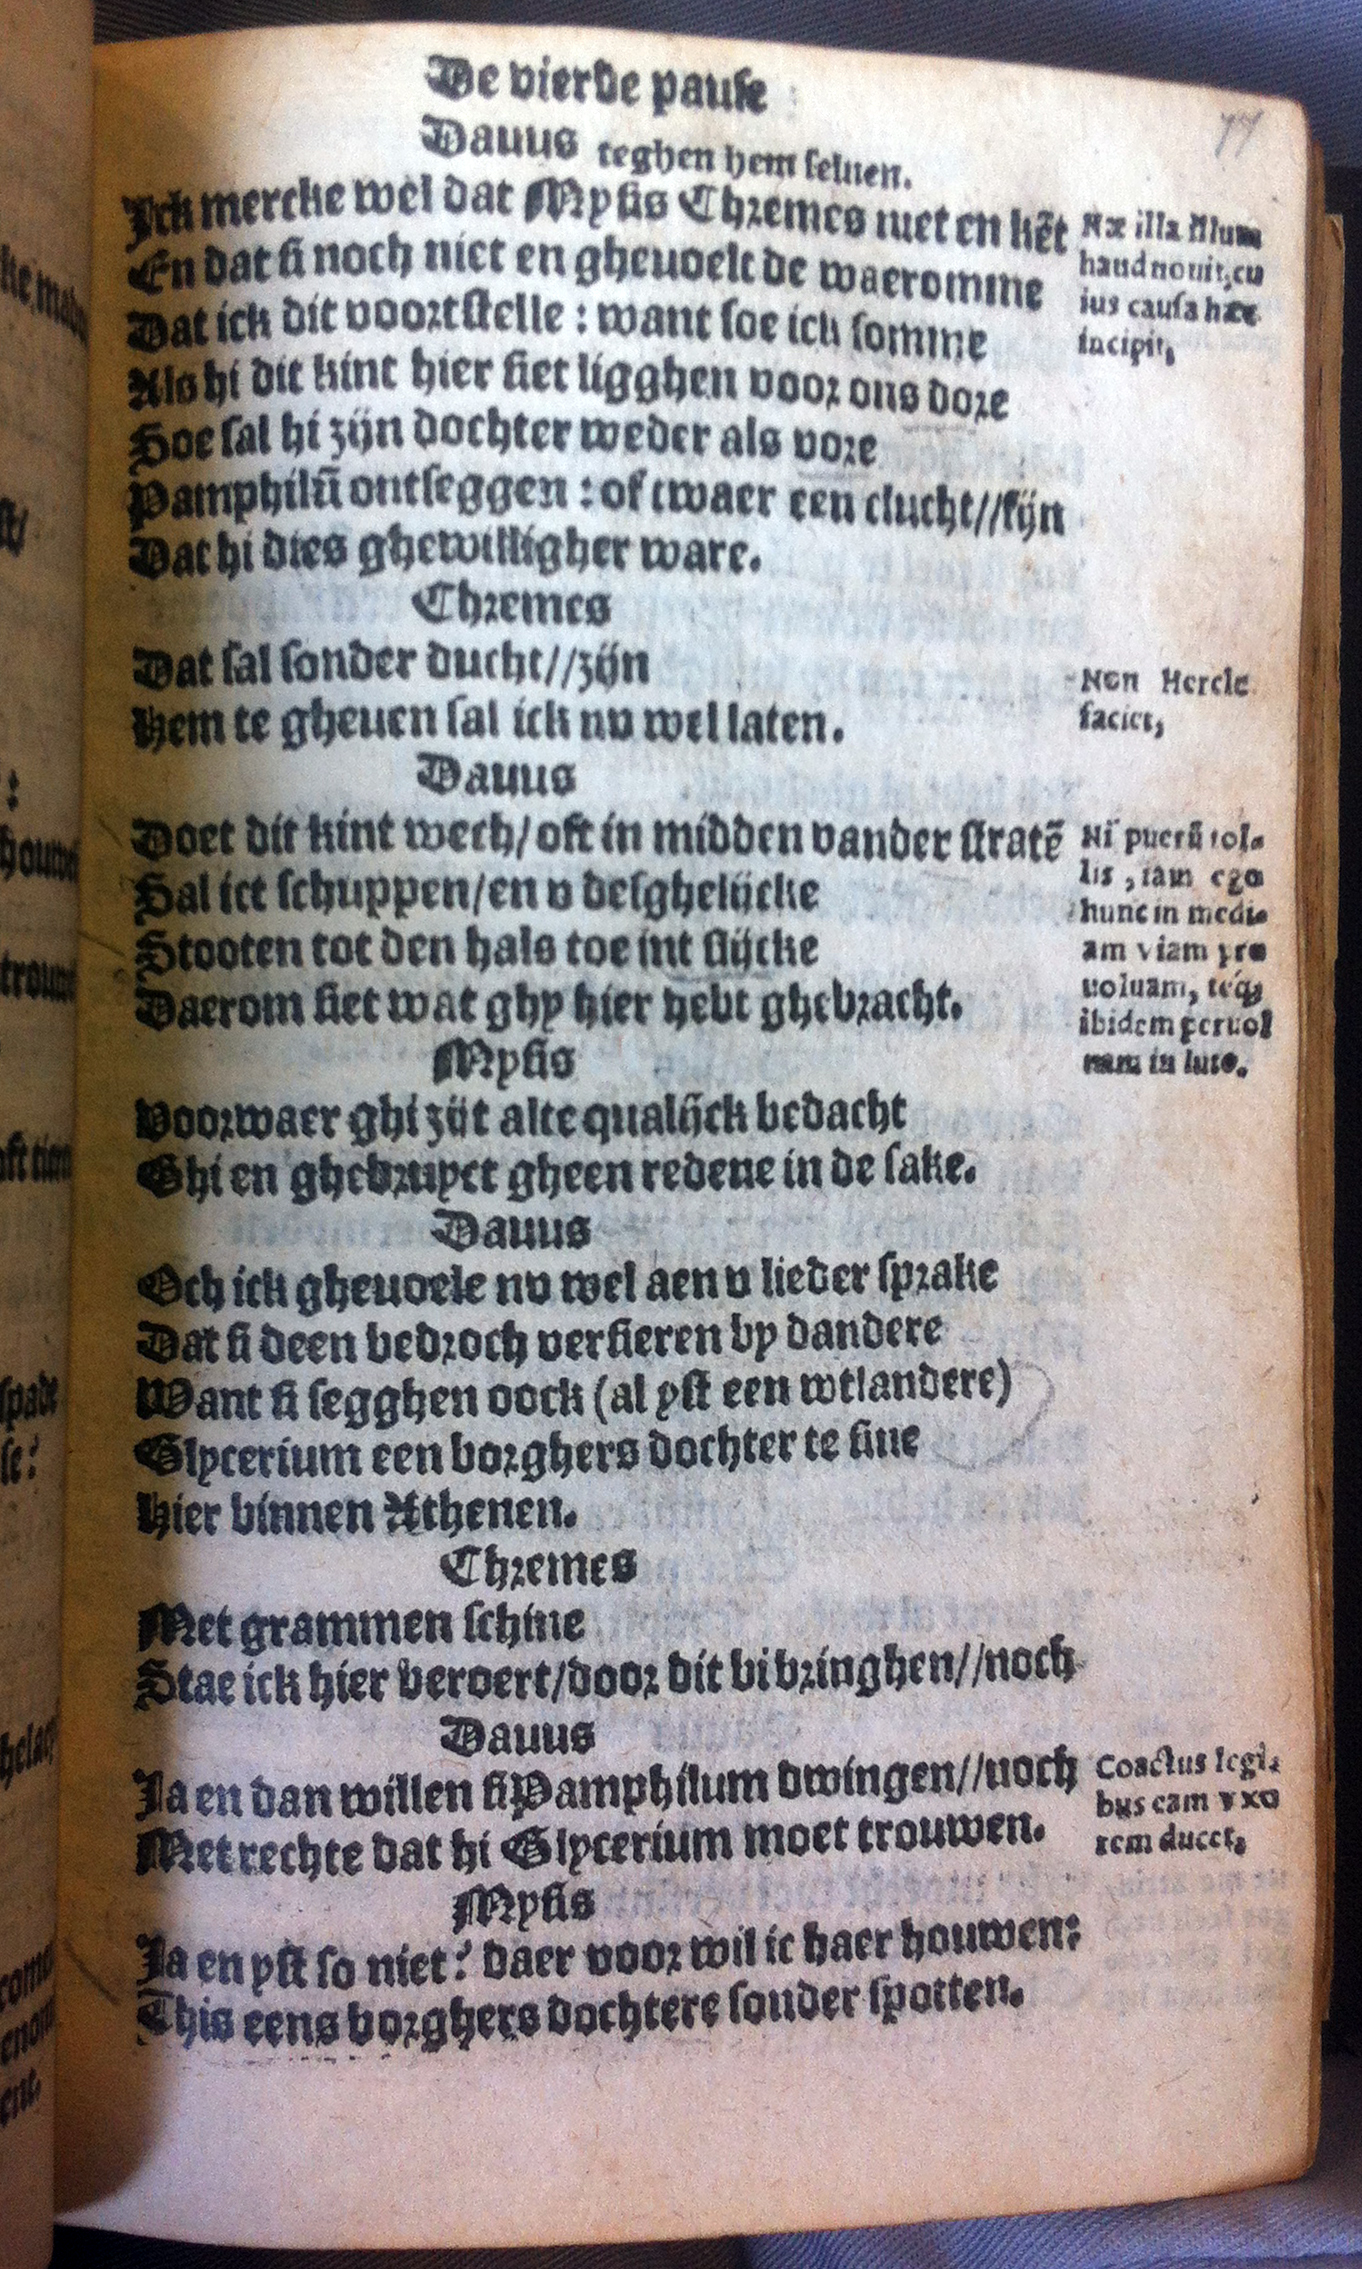 De vierde pause
77
Dauus teghen hem seluen.
Ick mercke wel dat Mysis Chremes niet en kēt
En dat si noch niet en gheuoelt de waeromme
Dat ick dit voortstelle : want soe ick somme
Als hi dit kint hier siet ligghen voor ons dore
Hoe sal hi zijn dochter weder als vore
Pamphilū ontseggen : of twaer een clucht//sijn
Dat hi dies ghewilligher ware.
Næ illa illum
haud nouit, cu
ius causa hæc
incipit,
Chremes
Dat sal sonder ducht//zijn
Hem te gheuen sal ick nv wel laten.
Non Hercle
faciet,
Dauus
Doet dit kint wech/ oft in midden vander stratē
Sal ict schuppen/en v desghelijcke
Stooten tot den hals toe int slijcke
Daerom siet wat ghy hier hebt ghebracht.
Ni puerū tol-
lis , iam ego
hunc in medi-
am viam pro
uoluam, teq́;
ibidem peruol
uam in luto.
Mysis
Voorwaer ghi zijt alte qualijck bedacht
Ghi en ghebruyct gheen redene in de sake.
Dauus
Och ick gheuoele nv wel aen v lieder sprake
Dat si deen bedroch versieren by dandere
Want si segghen oock (al yst een wtlandere)
Glycerium een borghers dochter te sine
Hier binnen Athenen.
Chremes
Met grammen schine
Stae ick hier beroert/door dit bibringhen//noch
Dauus
Ja en dan willen si Pamphilum dwingen//noch
Met rechte dat hi Glycerium moet trouwen.
Coactus legi-
bus eam vxo
rem ducet,
Mysis
Ja en yst so niet? daer voor wil ic haer houwen:
This eens borghers dochtere sonder spotten.